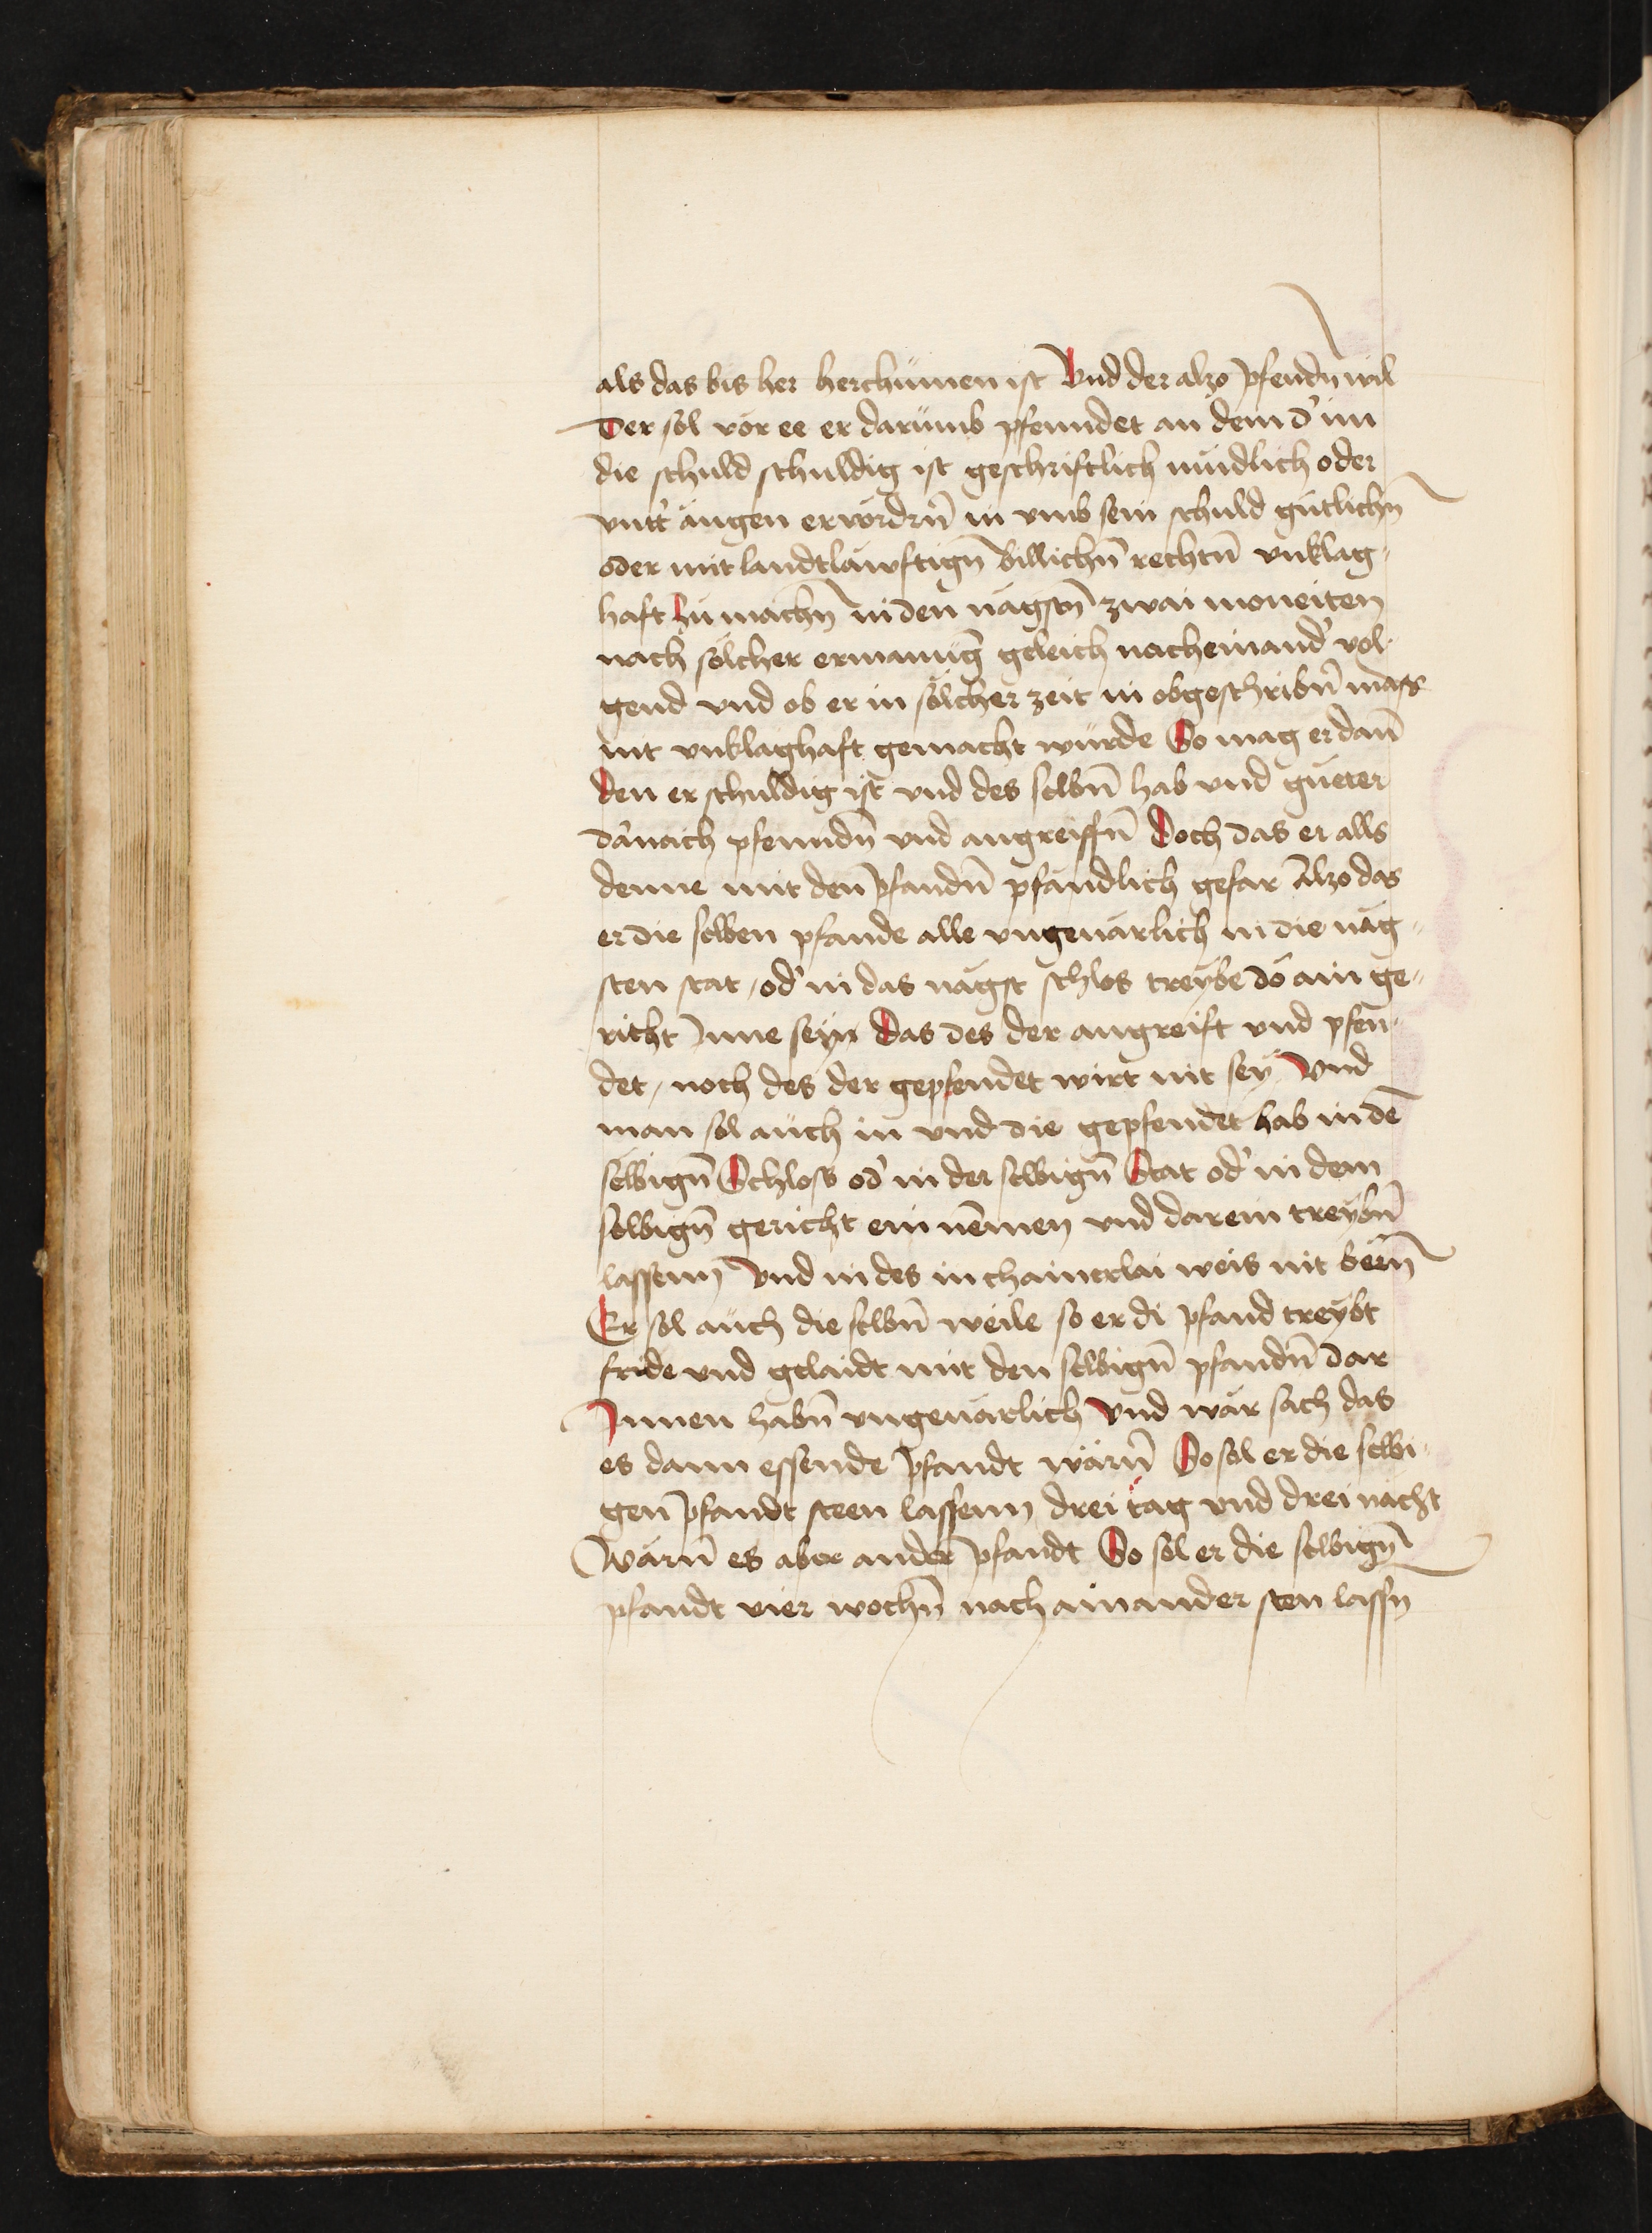 als das bis her herchumen ist Vnd der alzo pfendn̄ wil
Der sol vor ee er darumb pfenndet an dem d' im
die schuld schuldig ist geschriftlich mūdlich oder
vntt' augen ervordrn̄ in vmb sein schuld gutlichn̄
oder mit landtläwftign̄ billichn̄ rechtn̄ vnklag„
haft zu machn̄ in den nägstn̄ zwai moneiten
nach sölcher ermanūg geleich nacheinand' vol„
gend vnd ob er in sölcher zeit in obgeschribn̄ mass
nit vnklaghaft gemacht wurde So mag er dan̄
den er schuldig ist vnd des selbn̄ hab vnd gueter
dānach pfenndn̄ vnd angreiffn̄ Doch das er alls
denne mit den pfandn̄ pfändlich gefar Alzo das
er die selben pfande alle vngeuärlich in die näg„
sten stat / od' in das nägst schlos treybe do ain ge„
richt Inne seyn Das des der angreift vnd pfen„
det / noch des der gepfendet wirt nit sey Vnd
man sol auch in vnd die gepfendet hab in dē
selbign̄ Schloss od' in der selbign̄ Stat od' in dem
selbign̄ gericht ein nēmen vnd darein treybn̄
lassenn Vnd in des in chainerlai weis nit bern̄
Er sol auch die selbn̄ weile so er di pfand treybt
fride vnd gelaidt mit den selbign̄ pfandn̄ dar
Innen habn̄ vngeuärlich Vnd wär sach das
es dann essende pfandt wärn̄ So sol er die selbi„
gen pfandt steen lassenn drei tag vnd drei nacht
Wärn̄ es aber ander pfandt So sol er die selbign̄
pfandt vier wochn̄ nach ainander sten lassn̄